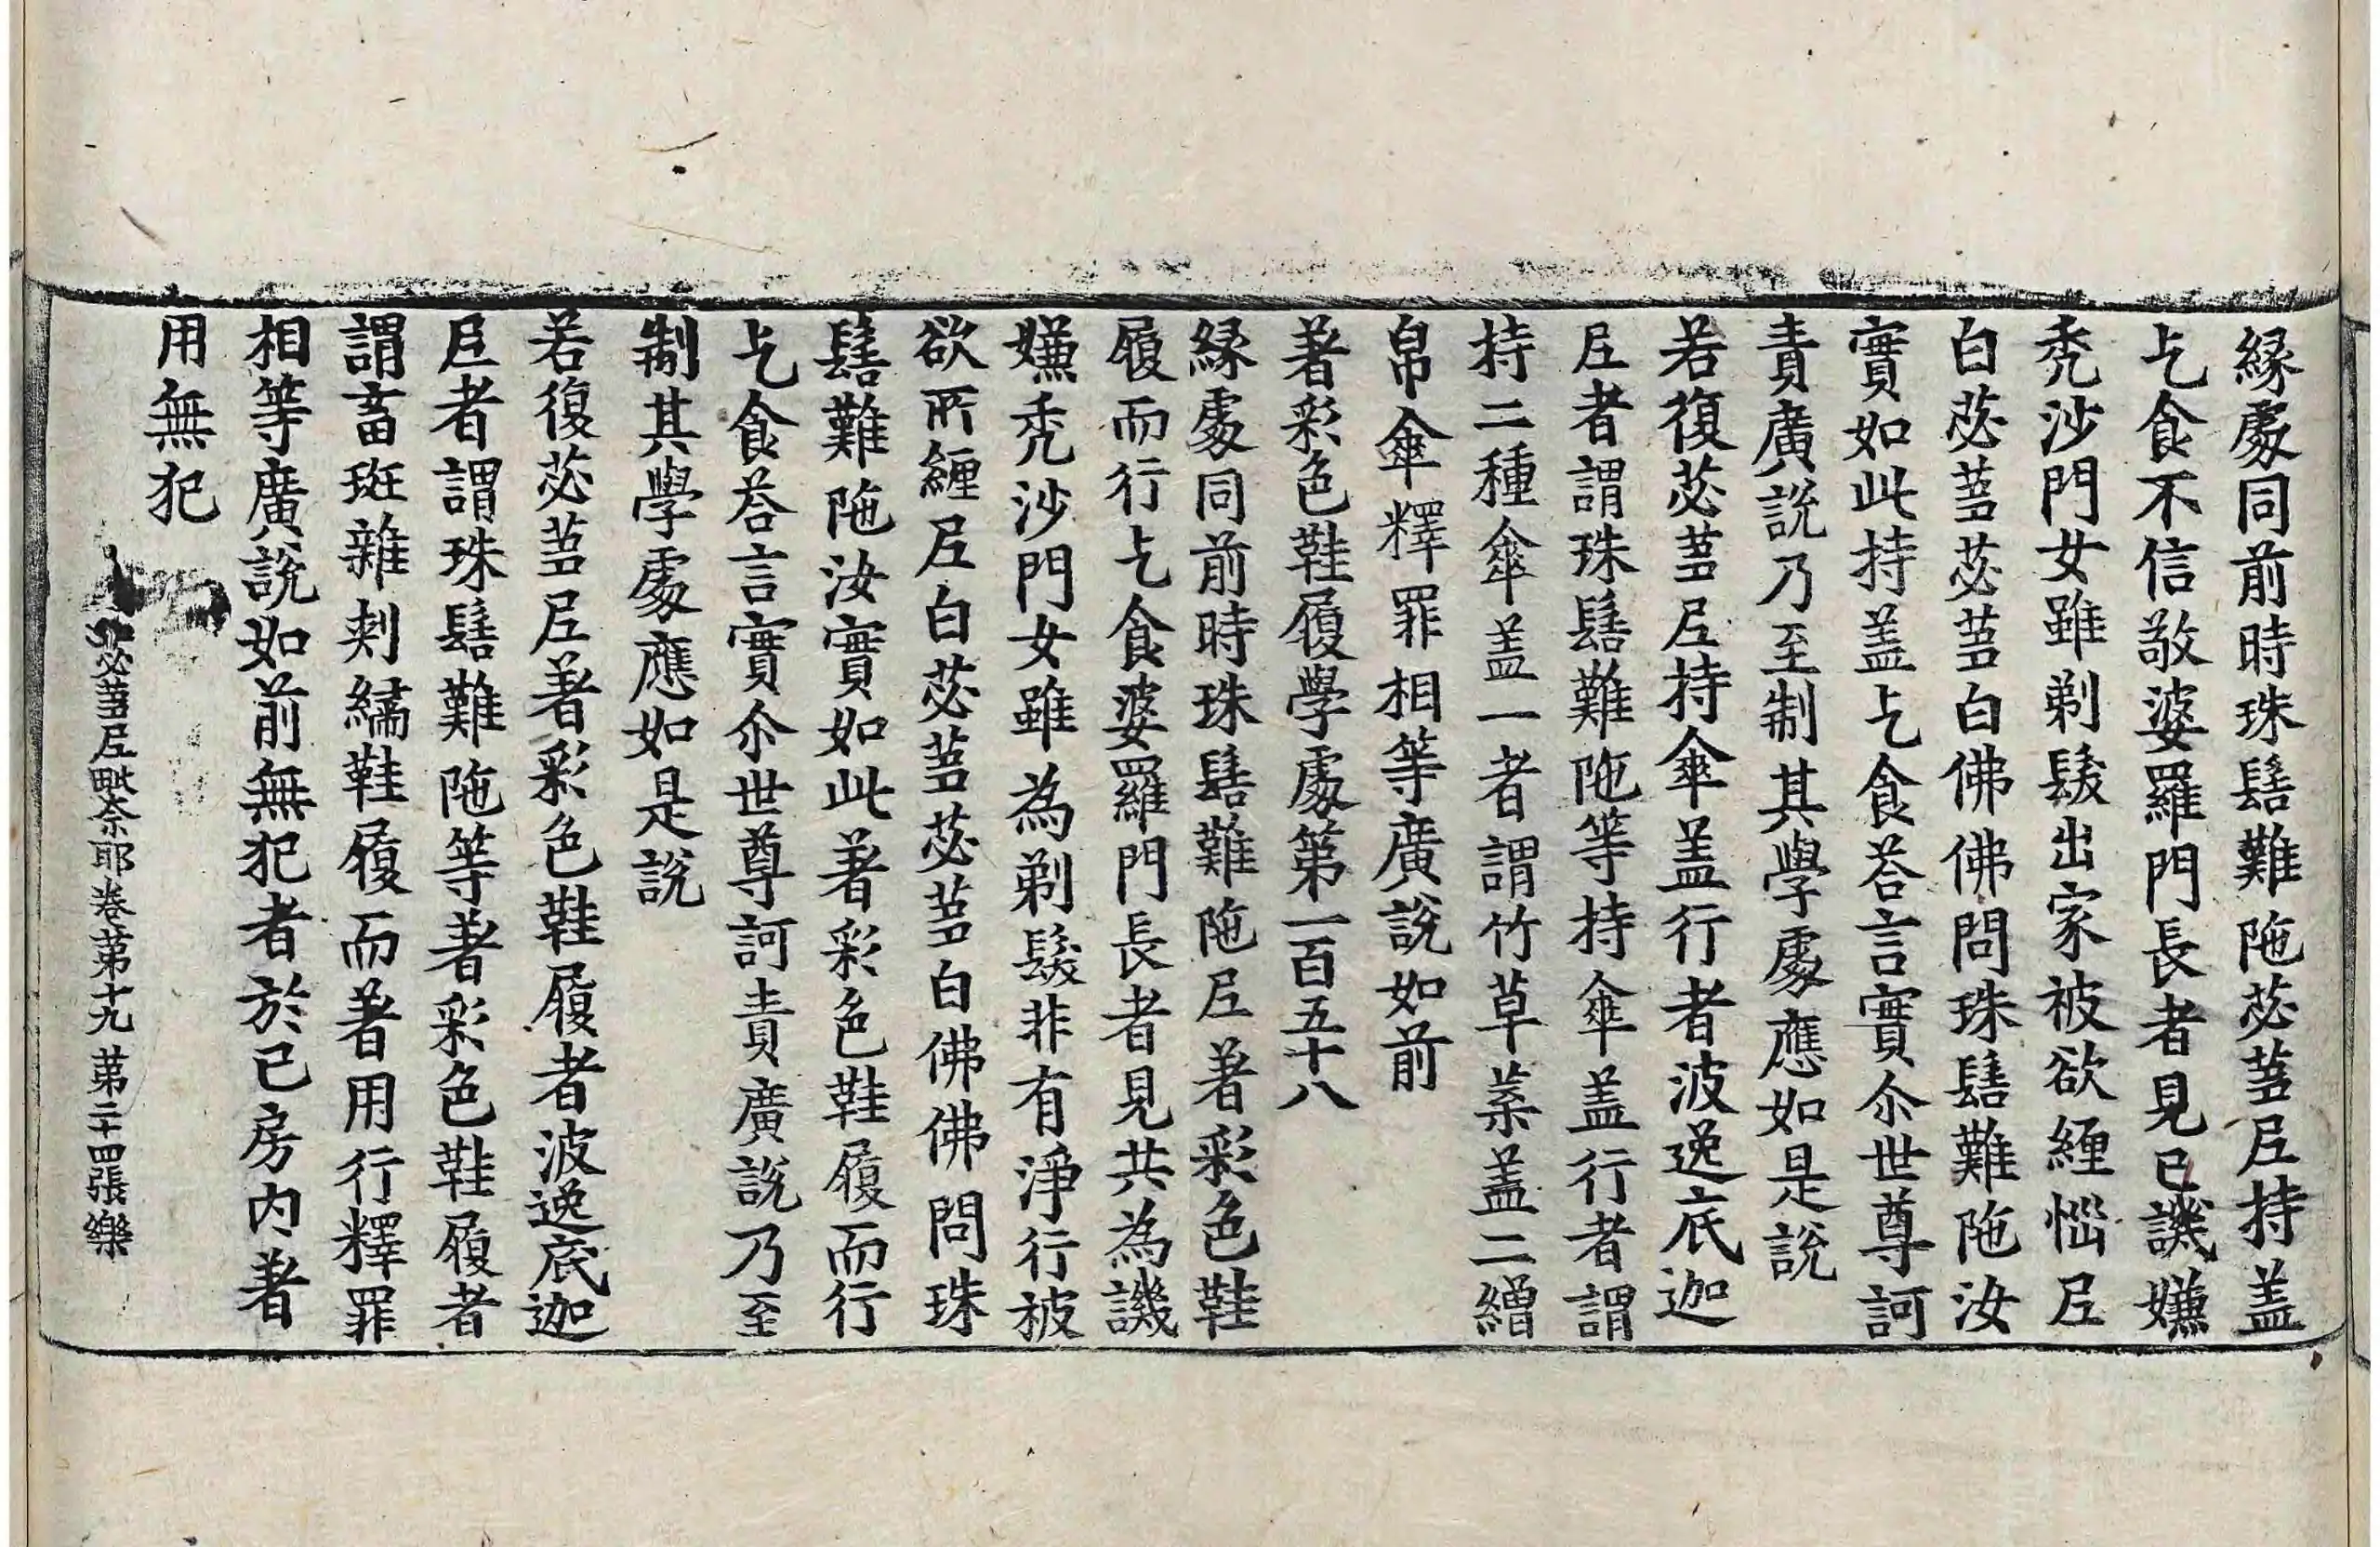 縁處同前時珠髻難陁苾蒭𡰱持盖
乞食不信敬婆羅門長者見已譏嫌
禿沙門女雖剃髮出家被欲纏惱𡰱
白苾蒭苾蒭白佛佛問珠髻難陁汝
實如此持盖乞食荅言實尒世尊訶
責廣說乃至制其學處應如是說
若復苾蒭𡰱持傘盖行者波逸底迦
𡰱者謂珠髻難陁等持傘盖行者謂
持二種傘盖一者謂竹草菜盖二繒
帛傘釋罪相等廣說如前
著彩色鞋履學處第一百五十八
縁處同前時珠髻難陁𡰱著彩色鞋
履而行乞食婆羅門長者見共為譏
嫌禿沙門女雖為剃髮非有淨行被
欲所纏𡰱白苾蒭苾蒭白佛佛問珠
髻難陁汝實如此著彩色鞋履而行
乞食荅言實尒世尊訶責廣說乃至
制其學處應如是說
若復苾蒭𡰱著彩色鞋履者波逸底迦
𡰱者謂珠髻難陁等著彩色鞋履者
謂畜斑雜刾繡鞋履而著用行釋罪
相等廣說如前無犯者於已房內著
用無犯
苾蒭𡰱毗奈耶卷第十九 第二十四張 樂